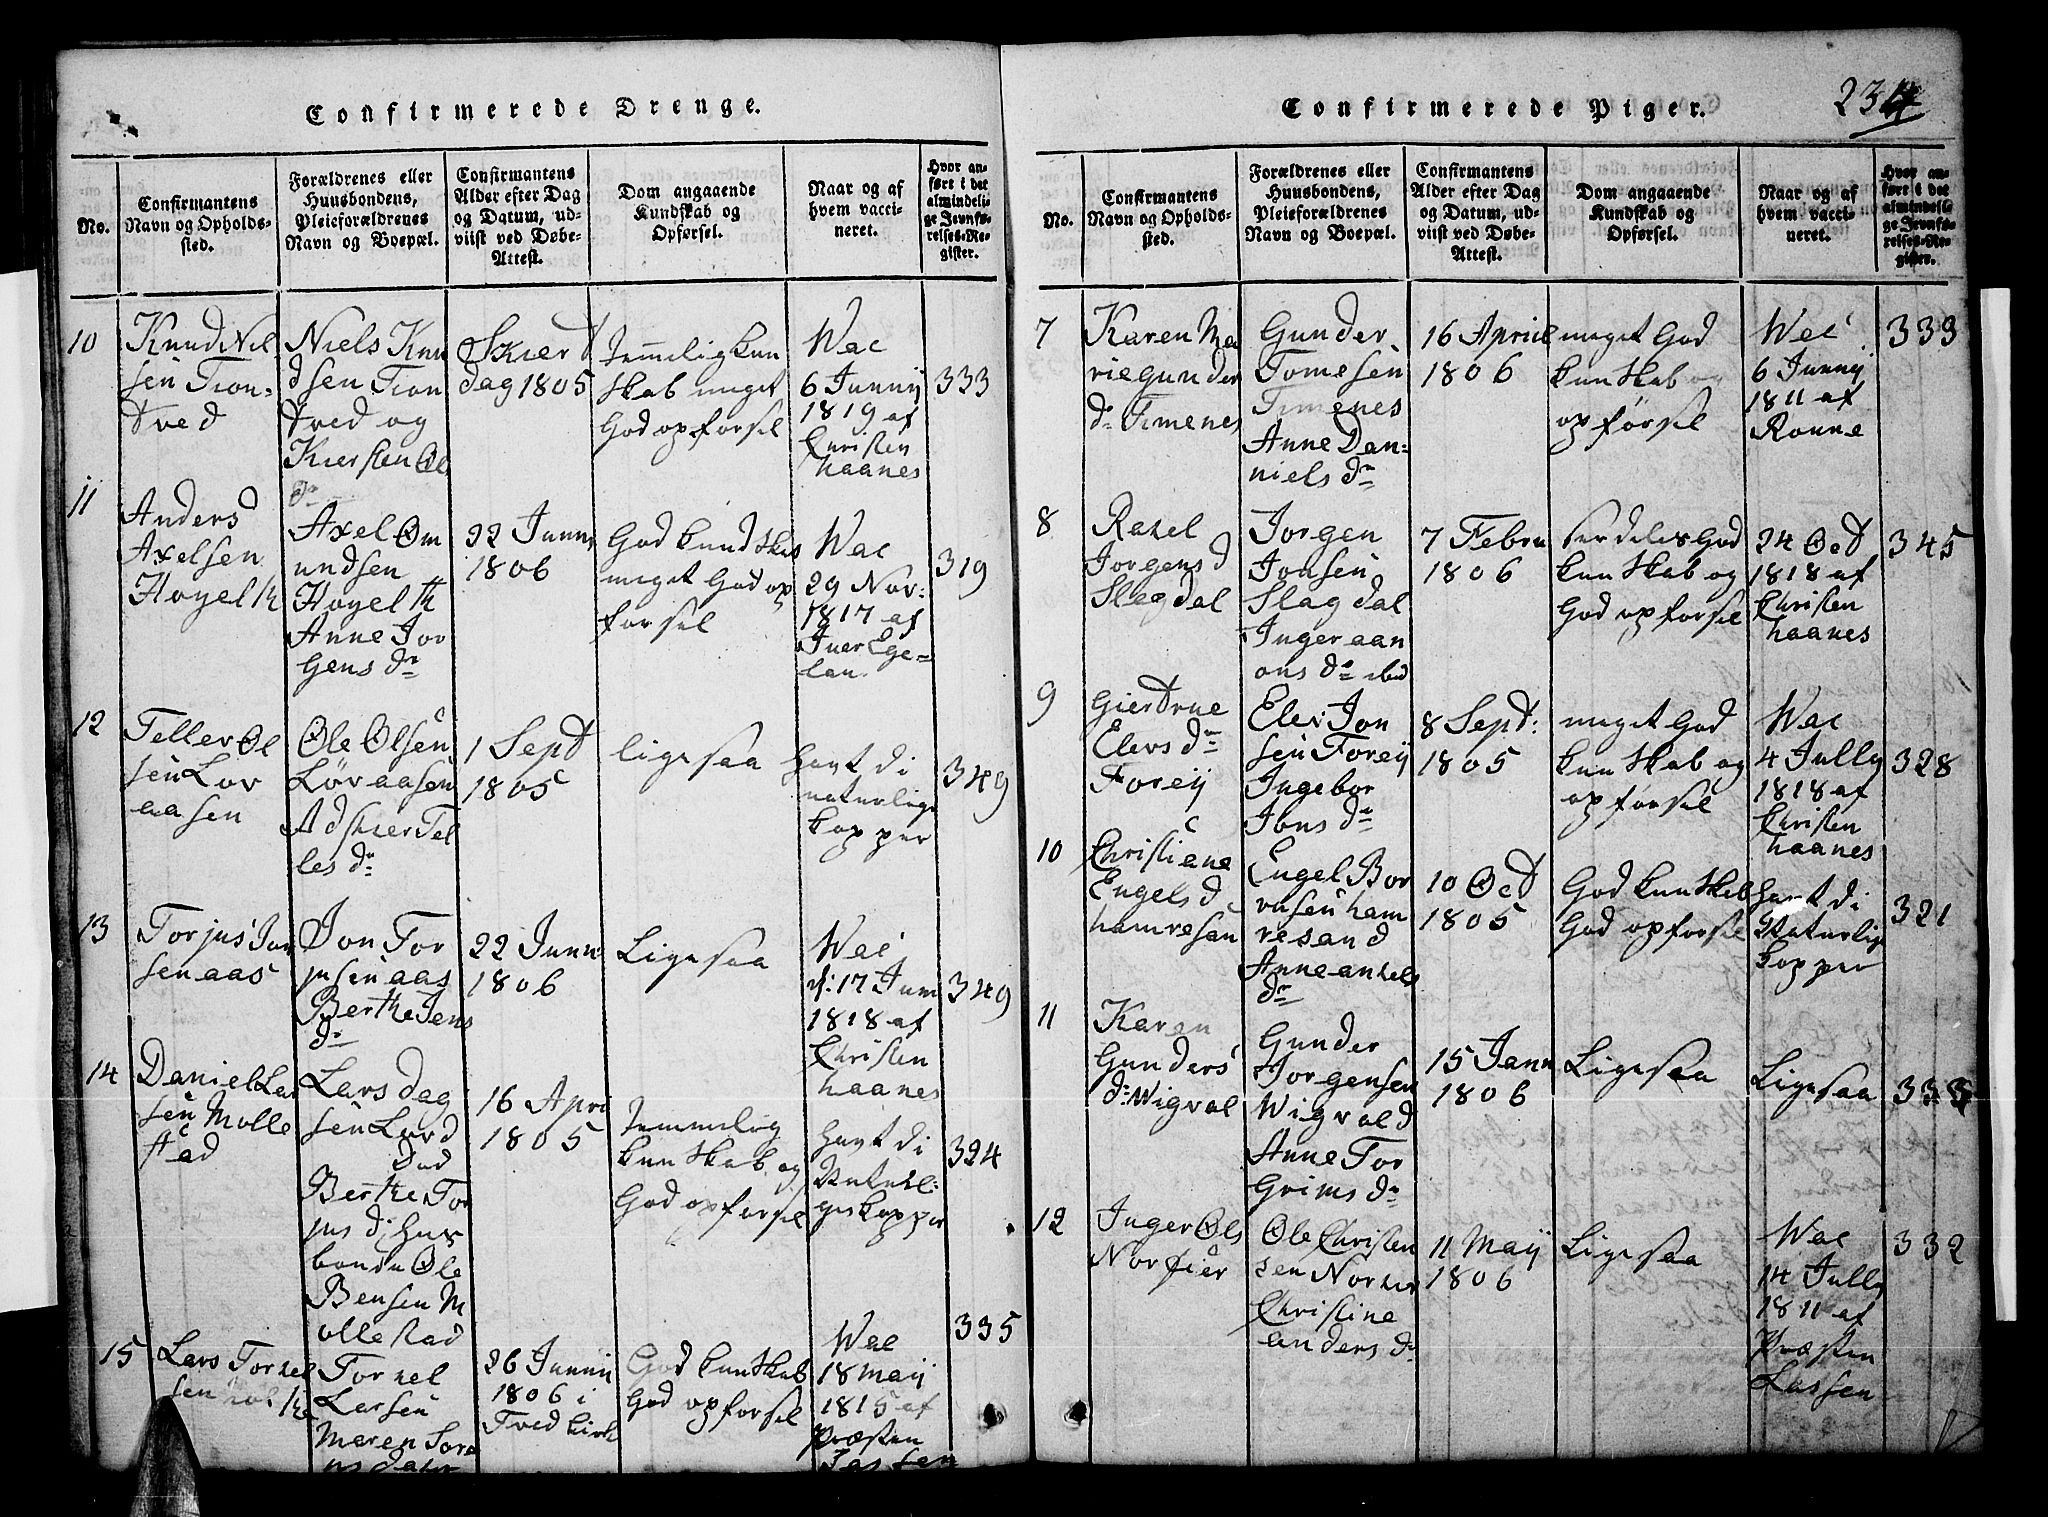 Confirmerede Drenge.
No.
Confirmantens
Navn og Opholds-
sted.
Forældrenes eller
Huusbondens,
Pleieforældrenes
Navn og Boepæl.
Confirmantens
Alder efter Dag
og Datum, ud-
viist ved Døbe-
Attest.
Dom angaaende
Kundskab og
Opførsel.
Naar og af
hvem vacci-
neret.
Hvor an-
ført i det
almindeli-
ge Jevnfø-
relses-Re-
gister.
10
Knud Nil
sen Tron-
tved
Niels Knu
dsen Tron
tved og
Kiersten Ols
dr
Skiert
dag 1805
Temmelig kun
skab meget
God opforsel
Wac
6 Junny
1819 af
Christen
haanes
333
11
Anders
Axelsen
Hoyelth
Axel Om
undsen
Hoyelth
Anne Jor
gens dr
22 Junny
1806
God kundskab
meget God op
forsel
Wac
29 Nov:
1817 af
Iver Ege-
lan
319
12
Teller Ol
sen Lov
aasen
Ole Olsen
Løvaasen
Adskier Tel
les dr
1 Sept
1805
ligesaa
havt di
naturlige
kopper
349
13
Torjus Jon
sen aas
Jon Tor
jusen aas
Berthe Jens
dr
22 Junn
1806
Ligesaa
Wac
d: 17 Juni
1818 af
Christen
haanes
349
14
Daniel Lar
sen Molle
stad
Lars dag
sen Lovd
Dod
Berthe Tor
jus d: hus
bonde Ole
Bensen M
ollestad
16 Apri
1805
Temmelig
kunskab og
God opforsel
havt di
Naturli-
ges kopper
324
15
Lars Torkel
sen
Torkel
Larsen
Maren Sore
ns dater
26 Junny
1806 i
Tved kirke
God kunskab
God opforsel
Wac
18 Maij
1815 af
Præsten
Lassen
335
Confirmerede Piger.
234
No.
Confirmantens
Navn og Opholds-
sted.
Forældrenes eller
Huusbondens,
Pleieforældrenes
Navn og Boepæl.
Confirmantens
Alder efter Dag
og Datum, ud-
viist ved Døbe-
Attest.
Dom angaaende
Kundskab og
Opførsel.
Naar og af
hvem vacci-
neret.
Hvor an-
ført i det
almindeli-
ge Jevnfø-
relses-Re-
gister.
7
Karen Ma
rie gunder
dr Timenes
Gunder
Tomesen
Timenes
Anne Dan-
niels dr
16 Apriel
1806
meget God
kunskab og
opførsel
Wac
6 Junny
1811 af
Ronne
339
8
Rakel
Jorgens d
Slegdal
Jorgen
Jonsen
Slagdal
Inger aan
ons dr ibid
7 Febru
1806
serdeles God
kunskab og
God opforsel
24 Oct
1818 af
Christen
haanes
345
9
Giertrue
Elers dr
Foreij
Eler Jon
sen Foreij
Ingebor
Jons dr
8 Sept:
1805
meget God
kunskab og
opførsel
Wac
4 Jully
1818 af
Christen
haanes
328
10
Christiane
Engels d
hamresan
Engel Bor
resen ham
resand
Anne ankels
dr
10 Oct
1805
God kunskab
God opforsel
havt di
Naturlige
kopper
321
11
Karen
Gunders
dr Wigval
Gunder
Jorgensen
Wigvald
Anne Tor
Grims dr
15 Jann
1806
Ligesaa
Ligesaa
12
Inger Ols
Ole Christen
sen
Christine
anders dr
11 Maij
1806
Ligesaa
Wac
14 Jully
1811 af
Præsten
Lassen
332